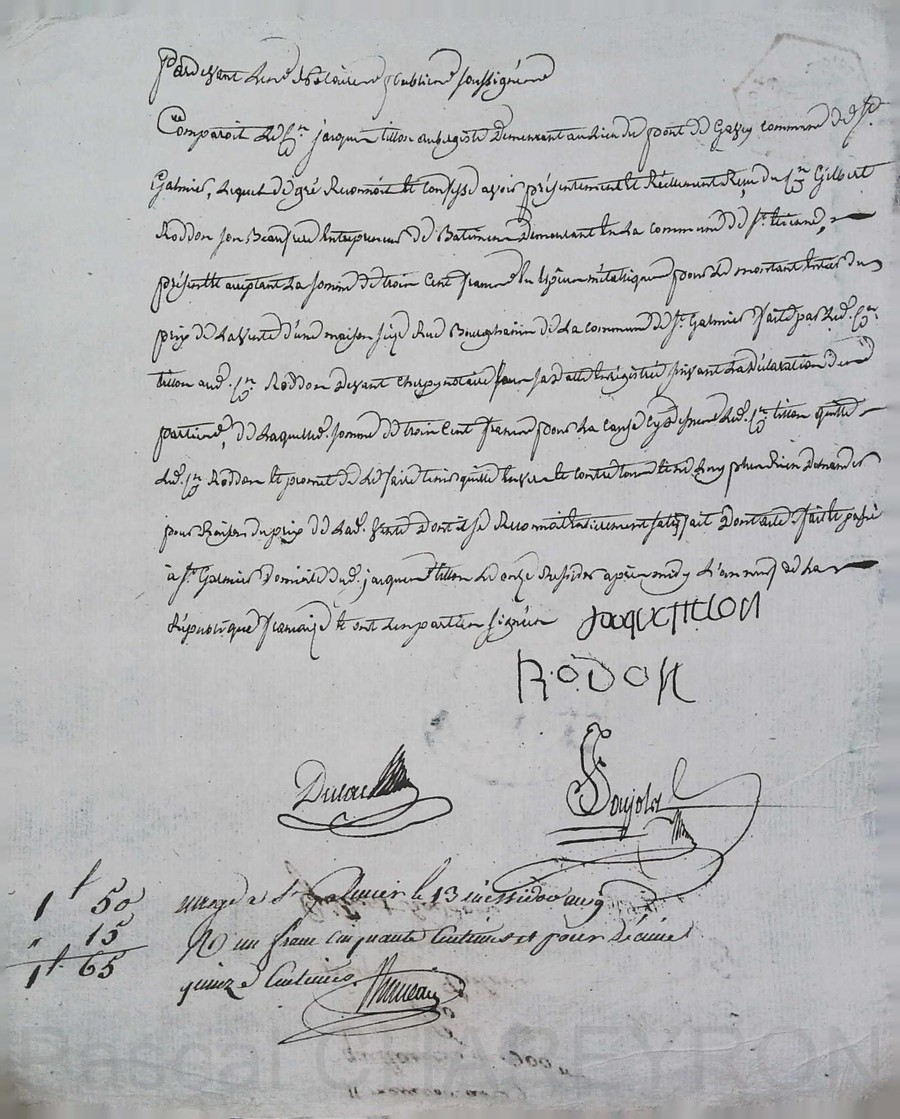 Pardevant les Notaires publics soussignés
Comparoit Led. Cen jacques tillon aubergiste Demeurant au lieu du pont de commune de St
Galmier, Lequel de gré Reconnoit et confesse avoir présentement et Réellement Reçu du Cen Gilbert
Roddon son Beaufrere Entrepreneur de Batimens Demeurant en La commune de St
présent et acceptant La somme de trois Cent francs En Espèces métalliques pour Le montant Entier du
prix de La vente d'une maison size Rue de La commune de St Galmier faite par Led. Cen
tillon aud. Cen Roddon Devant notaire sa datte Enregistrée suivant La déclaration des
parties, de Laquelle d. somme de trois Cent francs pour La cause cydessus Led. Cen tillon quitte
Led. Cen Roddon et promet de Le faire tenir quitte Envers et contre tous et ne Luy plus Rien Demander
pour Raison du prix de Lad. vente Dont il se Reconnoit Entierement satisfait Dont acte fait et passé
à St Galmier Domicile dud. jacques tillon Le onze Messidor après midy L'an neuf de La
République française Et ont Les parties signées JAQUE TILLON
RODON
Pujolas
1f 50
" 15
1f. 65
enregé a St galmier le 13 messidor an 9
R un franc cinquante Centimes et pour décime
quinze Centimes.
Pascal CHAREYRON